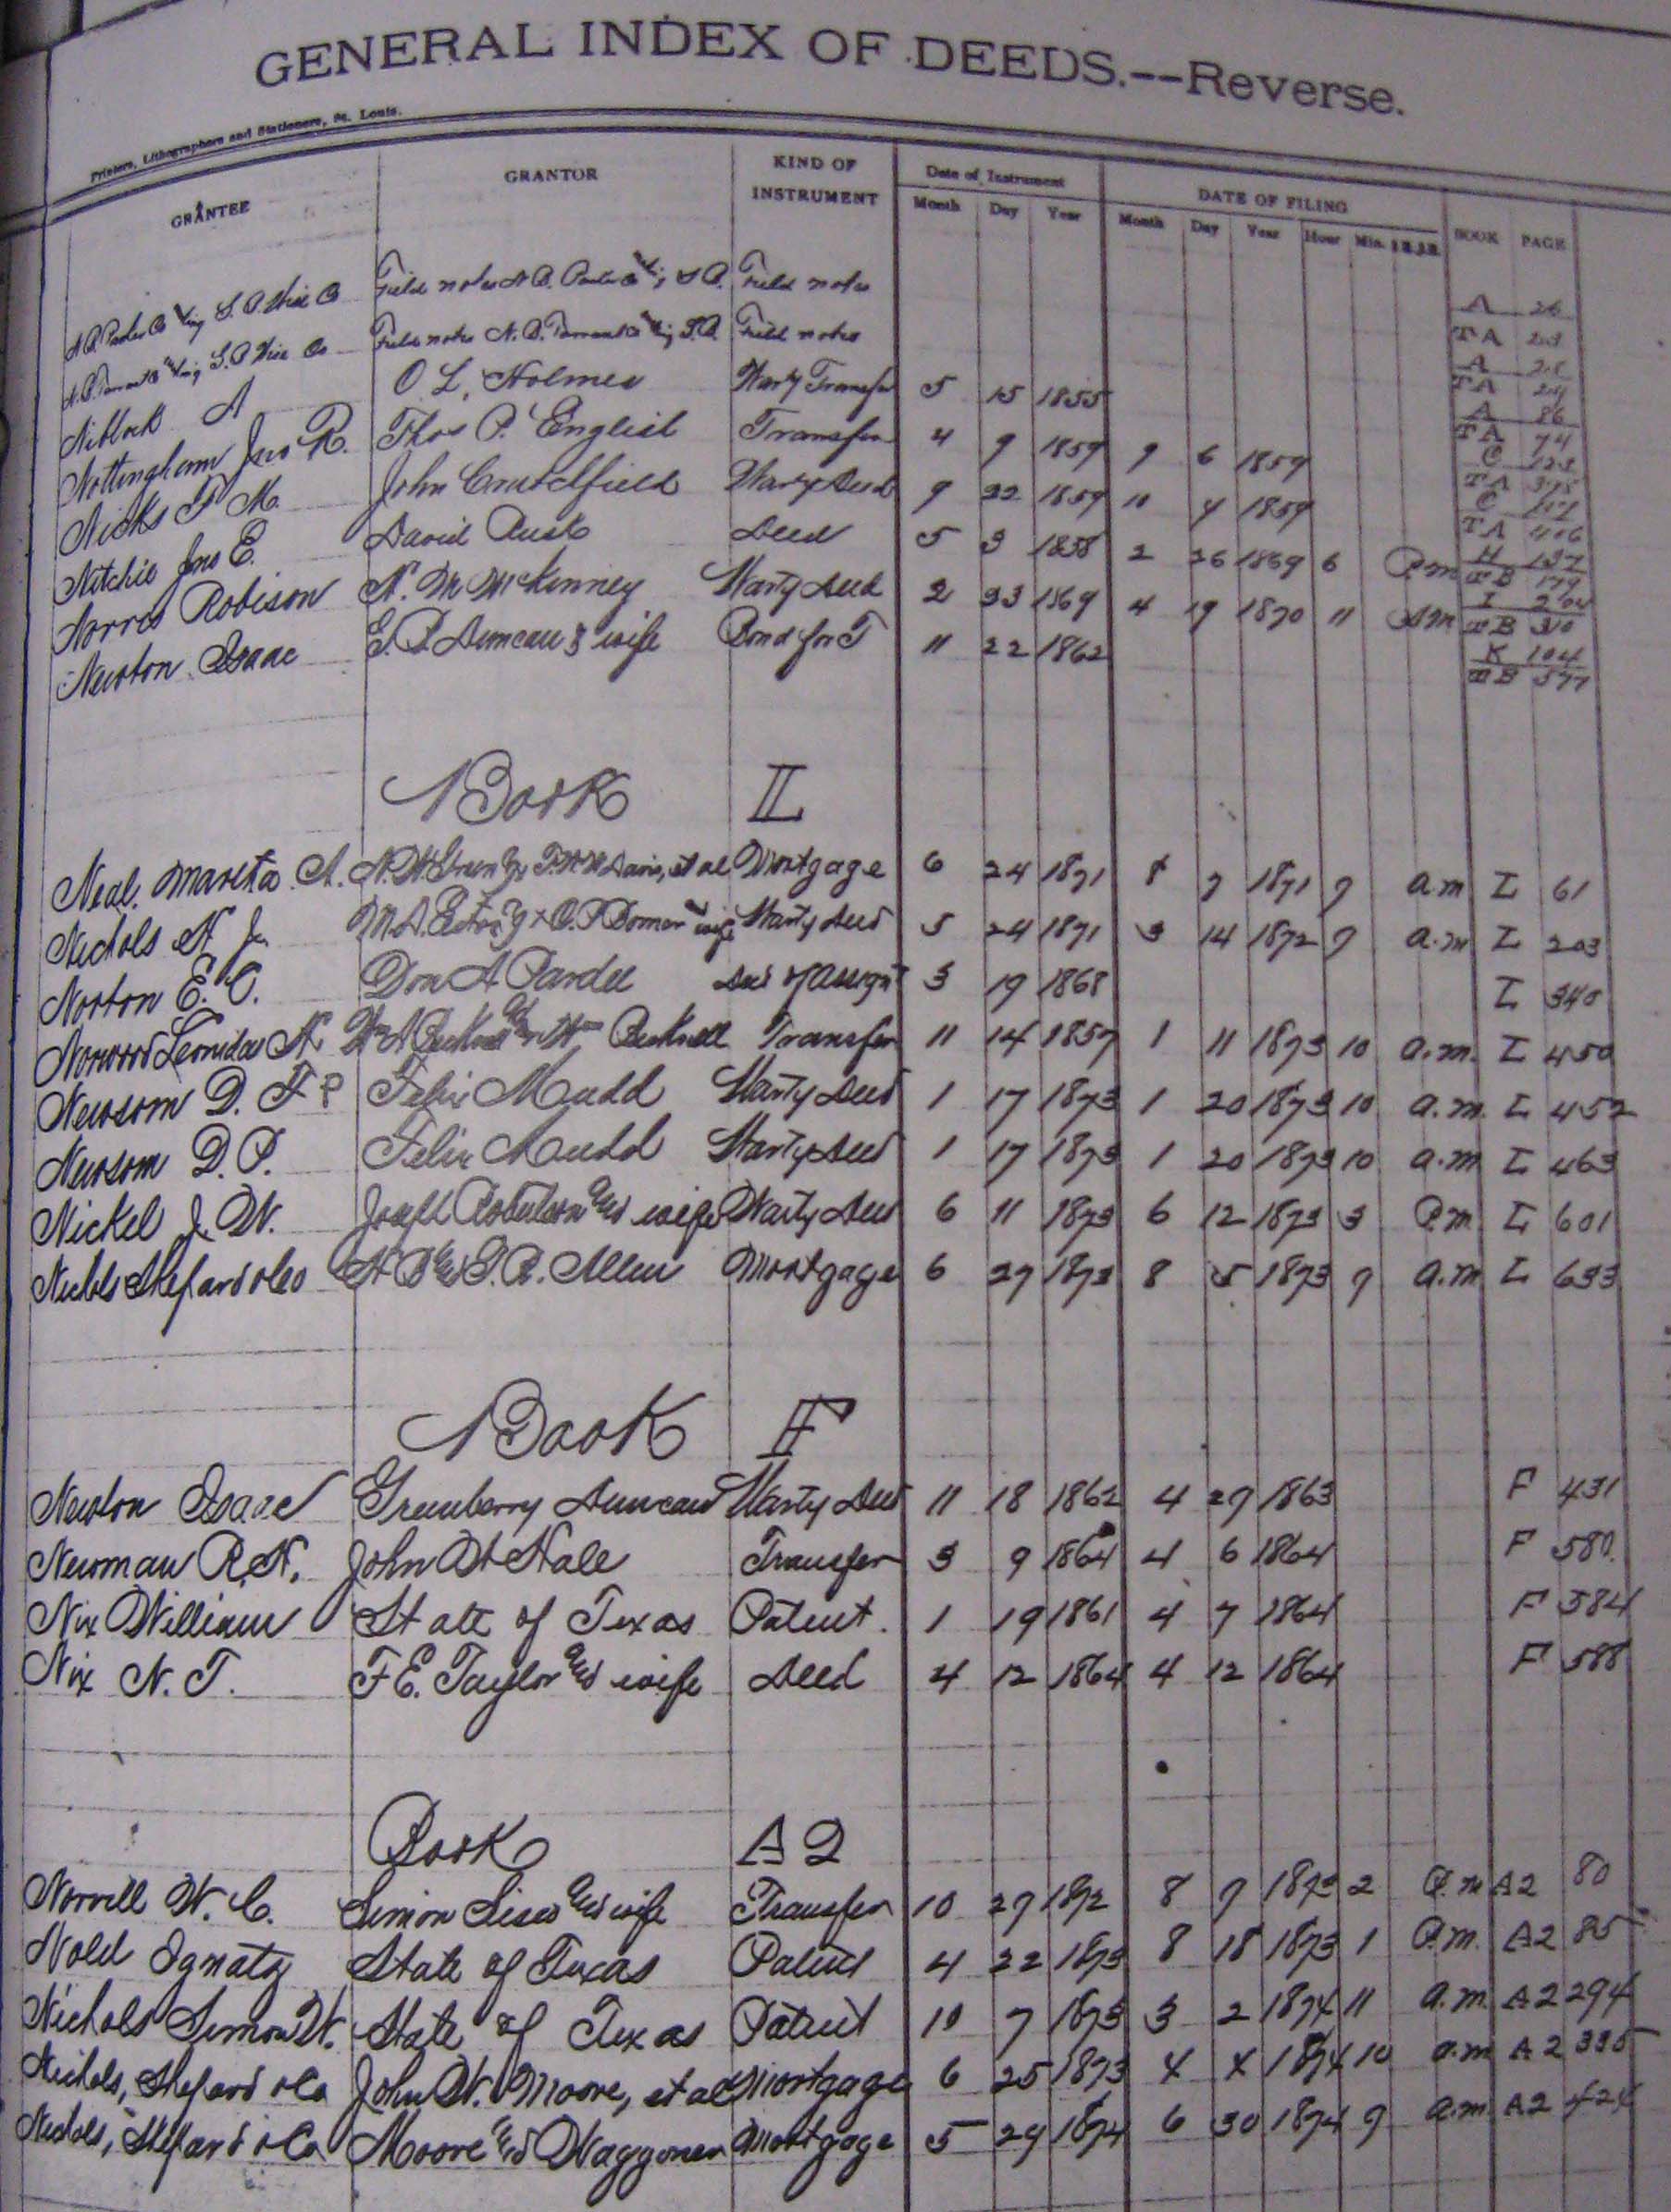 GENERAL INDEX OF DEEDS.--Reverse.
Printers, Lithographers and Stationers, St. Louis.
GRANTEE GRANTOR KIND OF INSTRUMENT Date of Instrument Month Day Year DATE OF FILING Month Day Year Hour Min. BOOK PAGE
S.P. Wise Co Field notes Field notes A 26
TA 23
S.P. Wise Co Field notes N.B. Tarrant Co Field notes A
TA
Niblock A O L, Holmes Warty Transfer 5 15 1855 A 86
TA 74
Nottingham Jno R. Thos P. English Transfer 4 9 1859 9 6 1859 C
TA
Nicks F M. John Crutchfield Warty Deed 9 22 1859 10 4 1859 C
TA 406
Nitchie Jno E. David Rusk Deed 5 3 1838 2 26 1869 6 P.m H 137
TB 179
Norris Robison N. M McKinney Warty Deed 2 23 1869 4 19 1870 11 A.m I 204
TB 310
Newton Isaac G. P. Duncan & wife Bond for T 11 22 1862 K 104
TB 577
Book L
Neal. Maretta A. Davis, et al Mortgage 6 24 1871 8 7 1871 9 a.m L 61
Nichols N J. wife Warty Deed 5 24 1871 3 14 1872 9 a.m L 203
Norton E. O. Don A Pardee Deed of Assign 3 19 1868 L 340
Norwood Leonidas N Wm Becknell Transfer 11 14 1857 1 11 1873 10 a.m. L 450
Newsom D. F ? Felix Mudd Warty Deed 1 17 1873 1 20 1873 10 a.m. L 452
Newsom D. P. Felix Mudd Warty Deed 1 17 1873 1 20 1873 10 a.m L 463
Nickel J. W. Joseph Robertson and wife Warty Deed 6 11 1873 6 12 1873 3 P.m L 601
Nichols Shepard & Co and G. R. Allen Mortgage 6 27 1873 8 5 1873 9 a.m L 633
Book F
Newton Isaac Greenberry Duncan Warty Deed 11 18 1862 4 29 1863 F 431
Newman R. N. John W Hale Transfer 3 9 1864 4 6 1864 F 580.
Nix William State of Texas Patent. 1 19 1861 4 7 1864 F 584
Nix N. T. F E. Taylor and wife Deed 4 12 1864 4 12 1864 F 588
Book A2
Norvill W. C. Simon Sisco and wife Transfer 10 29 1872 8 9 1873 2 P.m A2 80
Nold Ignatz State of Texas Patent 4 22 1873 8 18 1873 1 P.m. A2 85
Nichols Simon W. State of Texas Patent 10 7 1873 3 2 1874 11 a.m. A2 294
Nichols, Shepard & Co John W. Moore, et al Mortgage 6 25 1873 4 4 1874 10 a.m A2 335
Nichols, Shepard & Co Moore and Waggoner Mortgage 5 29 1874 6 30 1874 9 a.m. A2 424